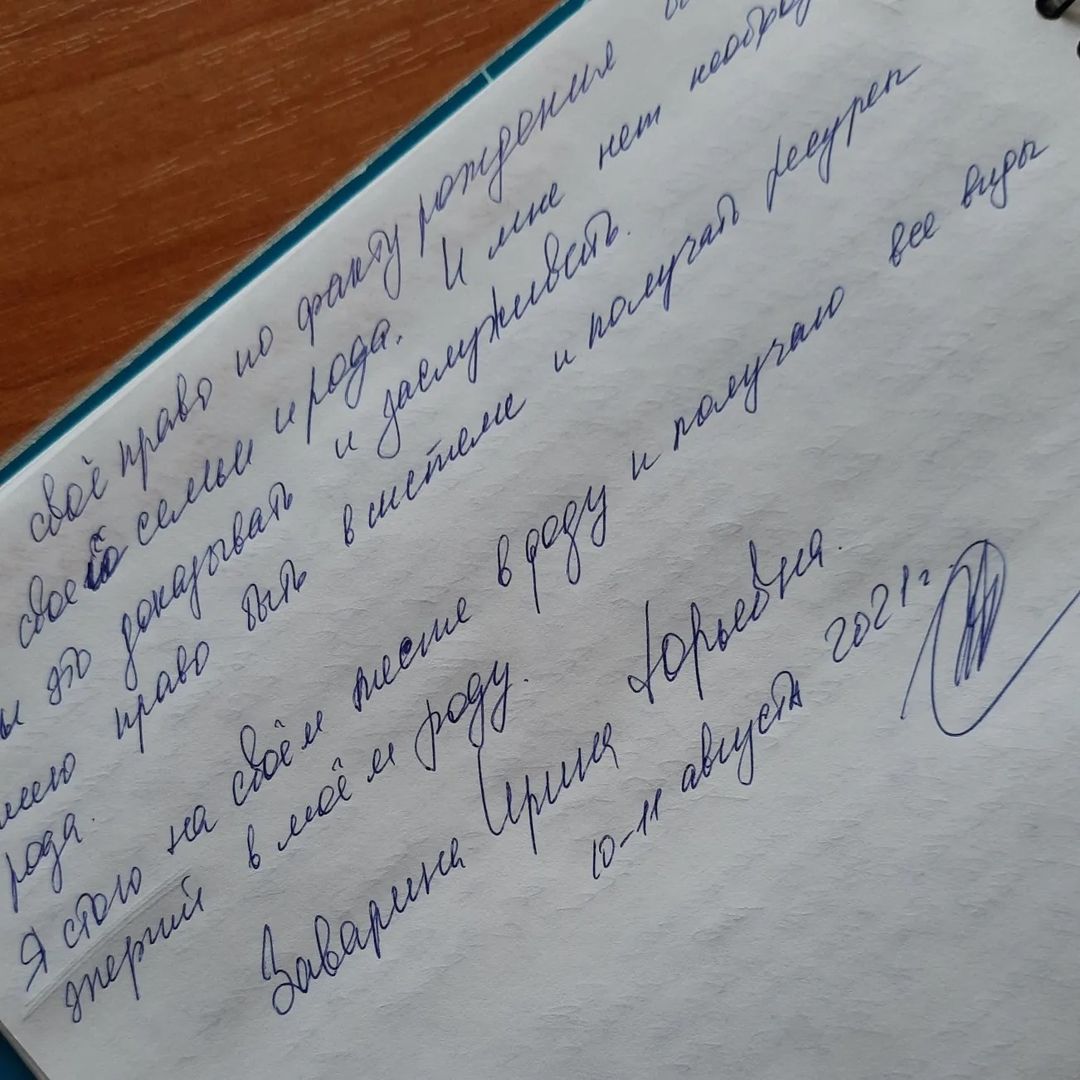 своё право по факту рождения
своей семьи и рода. И мне нет необход
ы это доказывать и заслуживать.
мею право быть в системе и получать ресурсы
рода.
Я стою на своём месте в роду и получаю все виды
энергий в моём роду.
Заварина Ирина Юрьевна.
10-11 августа 2021 г.